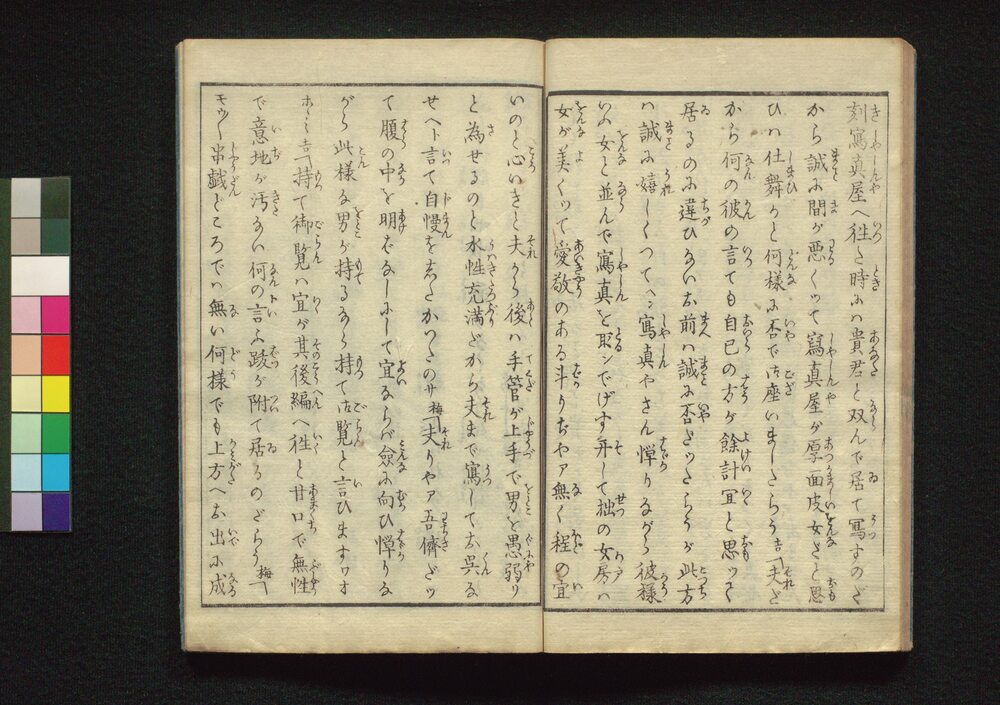 刻寫真屋へ往た時ハ貴君と双んで居て寫すのだ
から誠に間が悪くッて寫真屋が厚面皮女だと思
ひハ仕舞かと何様に否で御座いましたらう 吉「夫だ
から何の彼の言ても自己の方が餘計宜と思ッて
居るのに違ひないお前ハ誠に否だッたらうが此方
ハ誠に嬉しくつてヘヽ寫真やさん憚りながら彼様
いふ女と並んで寫真を取ンでげす并して拙の女房ハ
女が美くッて愛敬のある斗りぢやア無く程の宜
いのと心いきと夫から後ハ手管が上手で男を愚弱り
と為せるのと水性充満だから夫まで寫してお呉な
せヘト言て自慢をしたかつたのサ 梅「夫りやア吾儕だッ
て腹の中を明ばなしにして宜ならバ僉に向ひ憚りな
がら此様な男が持るなら持て御覧と言ひますワ オ
ホヽヽ 吉「持て御覧ハ宜が其後編へ往と甘口で無性
で意地が汚ない何の言ふ跋が附て居るのだらう 梅「
モウ〳〵串戯どころでハ無い何様でも上方へお出に成